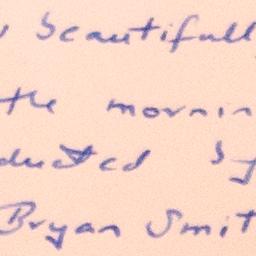 beautifull
the mornin
ducted by
Bryan Smit